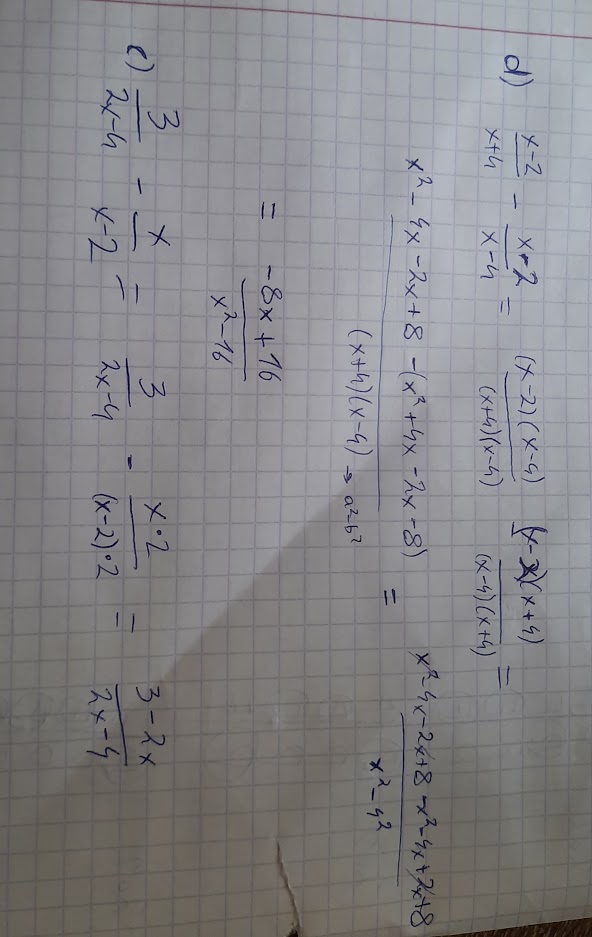 d) \frac{x-2}{x+4} - \frac{x-2}{x-4} = \frac{(x-2)(x-4)}{(x+4)(x-4)} \frac{(x-2)(x+4)}{(x-4)(x+4)} =
\frac{x²-4x-2x+8-(x²+4x-2x-8)}{(x+4)(x-4) → a²-b²} = \frac{x²-4x-2x+8-x²-4x+2x+8}{x²-4²}
= \frac{-8x+16}{x²-16}
c) \frac{3}{2x-4} - \frac{x}{x-2} = \frac{3}{2x-4} - \frac{x·2}{(x-2)·2} = \frac{3-2x}{2x-4}